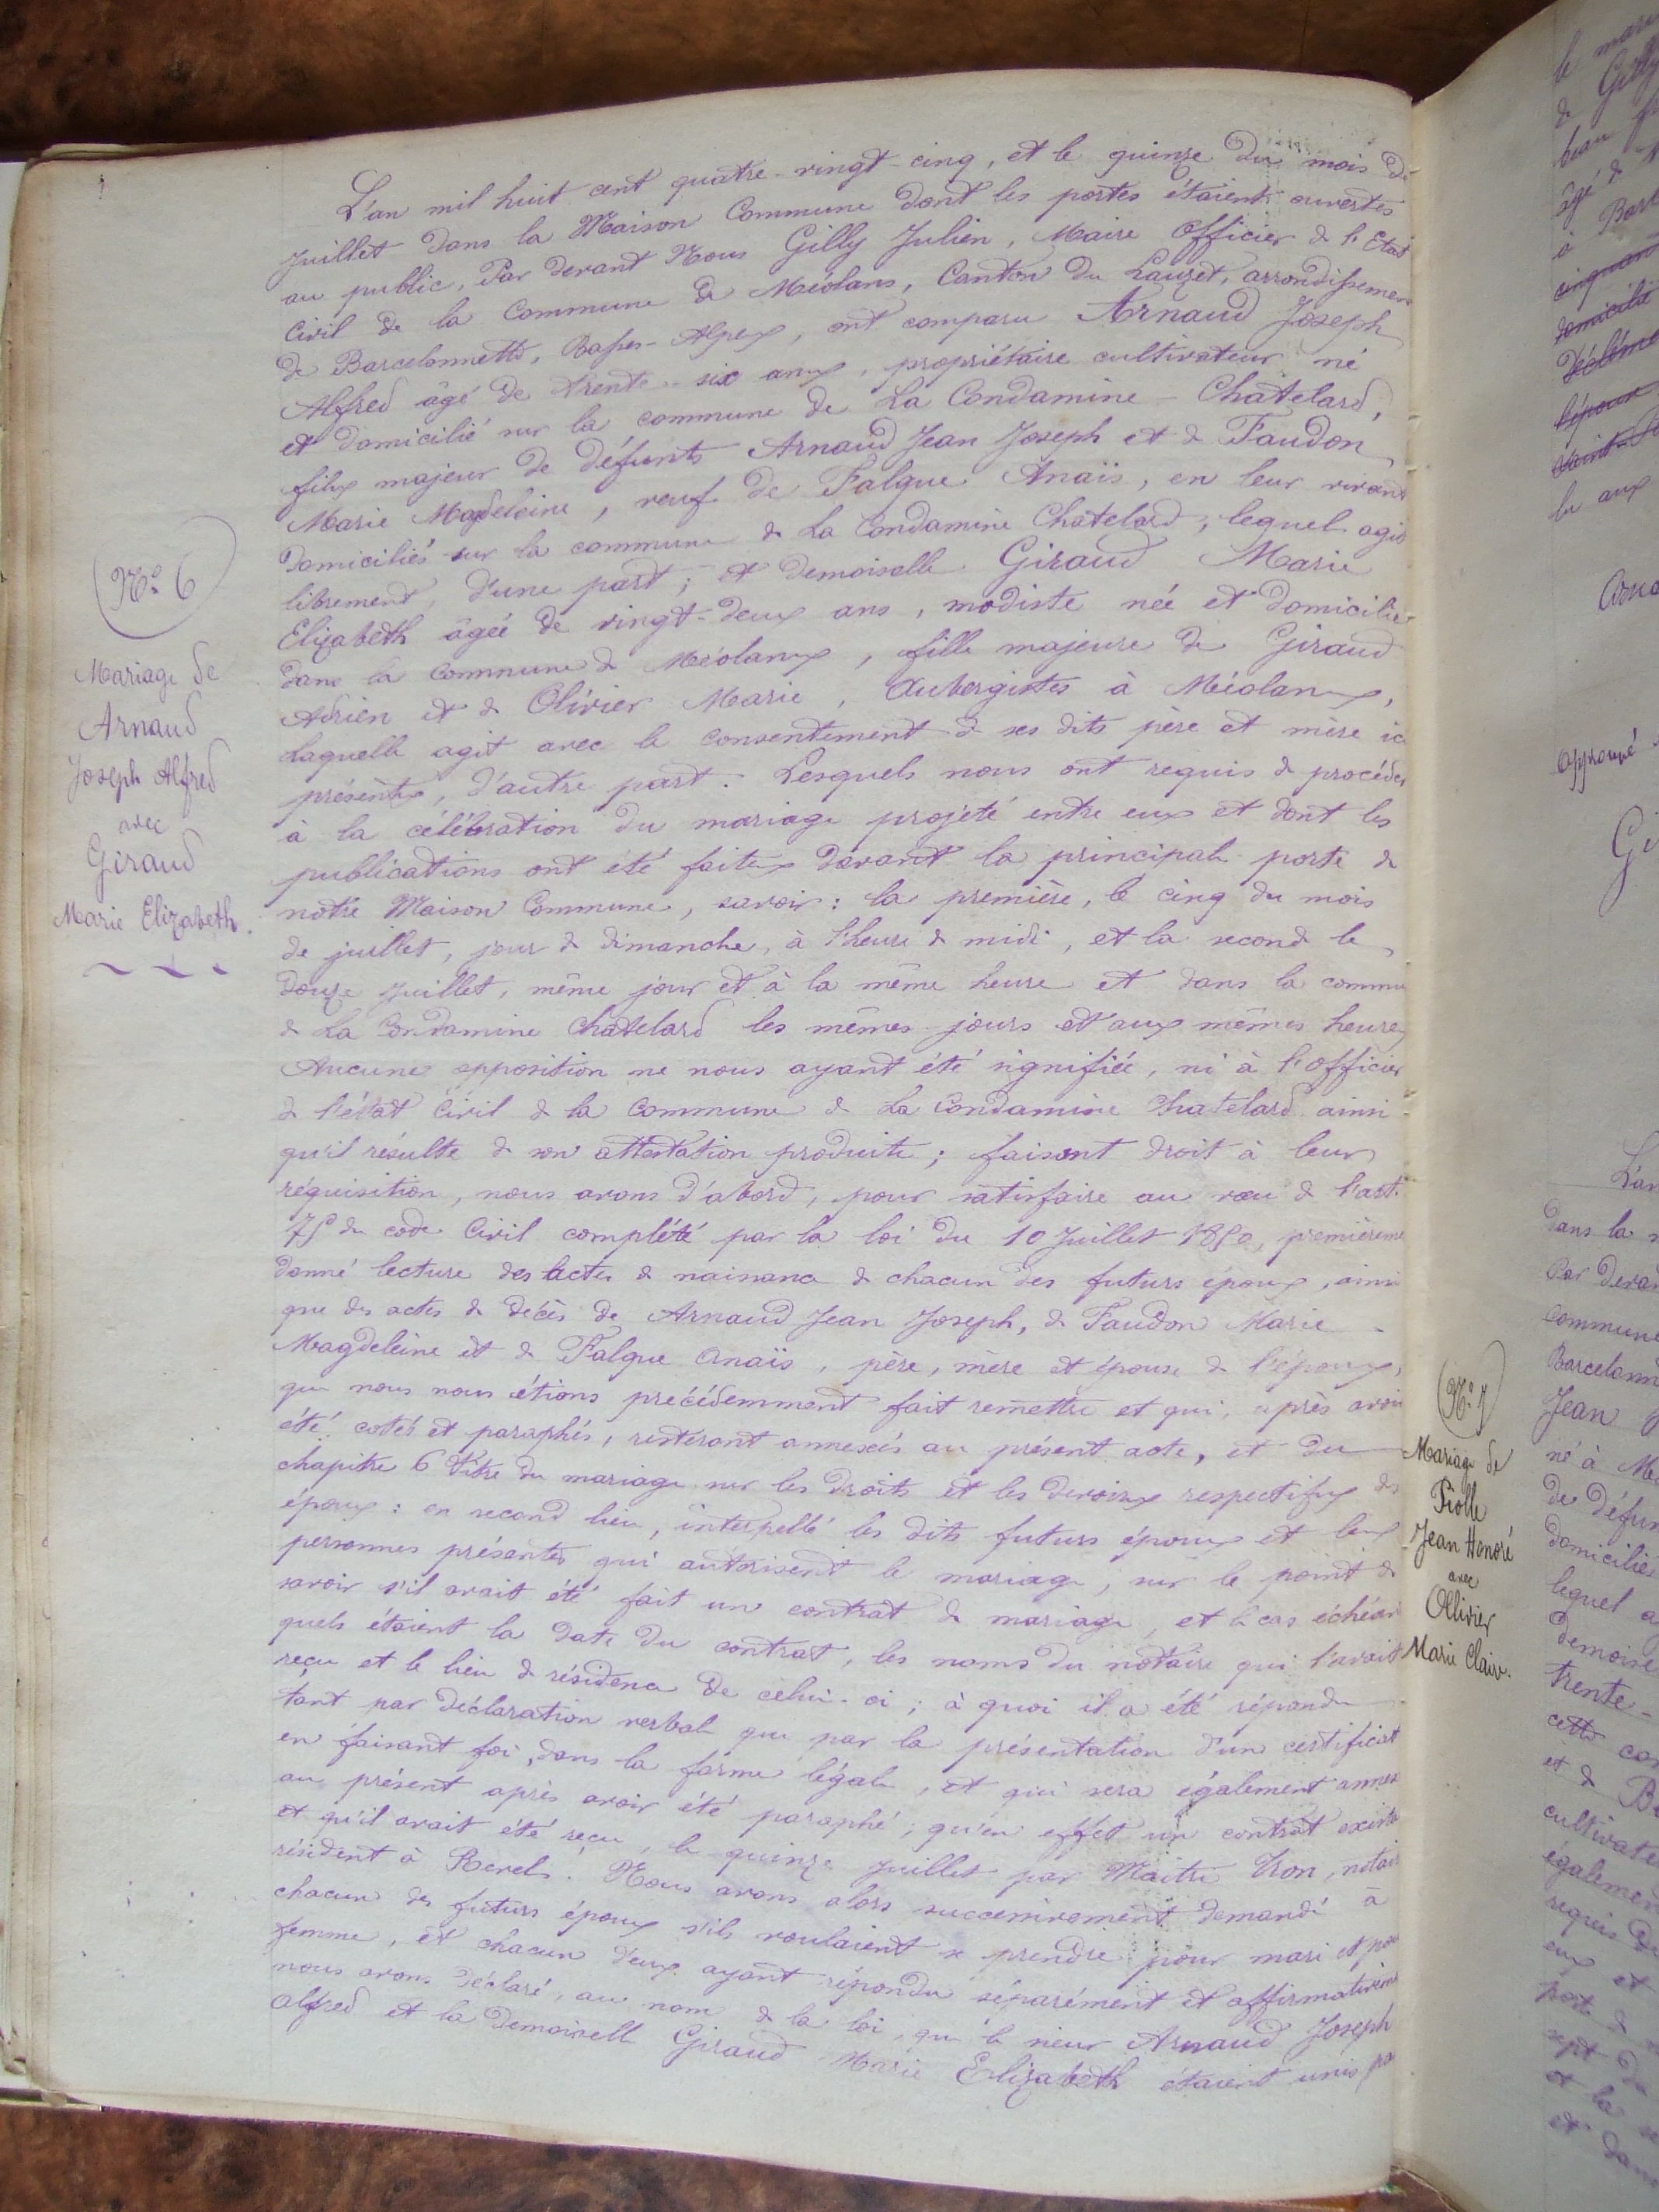 N° 6
Mariage de
Arnaud
Joseph Alfred
avec
Giraud
Marie Elizabeth.
L'an mil huit cent quatre-vingt-cinq, et le quinze du mois de
Juillet dans la Maison Commune dont les portes étaient ouvertes
au public, Par devant Nous Gilly Julien, Maire Officier de l'Etat
Civil de la Commune de Méolans, Canton du Lauzet, arrondissemen
de Barcelonnette, Basses-Alpes, ont comparu Arnaud Joseph
Alfred âgé de trente-six ans, propriétaire cultivateur né
et domicilié sur la commune de La Condamine-Châtelard,
fils majeur de défunts Arnaud Jean Joseph et de Faudon
Marie Magdeleine, veuf de Falque Anaïs, en leur vivant
domiciliés sur la commune de La Condamine Chatelard, lequel agit
librement, d'une part; et demoiselle Giraud Marie
Elizabeth âgée de vingt-deux ans, modiste née et domicilie
dans la commune de Méolans, fille majeure de Giraud
Adrien et de Olivier Marie, Aubergistes à Méolans,
Laquelle agit avec le consentement de ses dits père et mère ic
présents, d'autre part. Lesquels nous ont requis de procéder
à la célébration du mariage projeté entre eux et dont les
publications ont été faites devant la principale porte de
notre Maison Commune, savoir: la première, le cinq du mois
de juillet, jour de dimanche, à l'heure de midi, et la second le
douze Juillet, même jour et à la même heure et dans la commu
de La Condamine Chatelard les mêmes jours et aux mêmes heures
Aucune opposition ne nous ayant été signifiée, ni à l'officier
de l'état Civil de la Commune de La Condamine Chatelard ainsi
qu'il résulte de son attestation produite; faisant droit à leur
réquisition, nous avons d'abord, pour satisfaire au vœu de l'art.
75 du code Civil complété par la loi du 10 Juillet 1850, premièreme
donné lecture des actes de naissance de chacun des futurs époux, ainsi
que des actes de décès de Arnaud Jean Joseph, de Faudon Marie
Magdeleine et de Falque Anaïs, père, mère et épouse de l'époux,
que nous nous étions précédemment fait remettre et qui, après avoir
été cotés et paraphés, resteront annexés au présent acte, et du
chapitre 6 titre du mariage sur les droits et les devoirs respectifs des
époux: en second lieu, interpellé les dits futurs époux et les
personnes présentes qui autorisent le mariage, sur le point de
savoir s'il avait été fait un contrat de mariage, et le cas échéan
quels étaient la date du contrat, les noms du notaire qui l'avait
reçu et le lieu de résidence de celui-ci; à quoi il a été répondu
tant par déclaration verbale que par la présentation d'un certificat
en faisant foi, dans la forme légale, et qui sera également annex
au présent après avoir été paraphé; qu'en effet un contrat existe
et qu'il avait été reçu, le quinze Juillet par Maître Tron, notai
résident à Revel. Nous avons alors successivement demandé à
chacun des futurs époux s'ils voulaient se prendre pour mari et pou
femme, et chacun d'eux ayant répondu séparément et affirmativeme
nous avons déclaré, au nom de la loi, que le sieur Arnaud Joseph
Alfred et la demoiselle Giraud Marie Elizabeth étaient unis pa
le mari
de Gilly
beau
âgé de
à Bar
cinquan
domicilié
l'époux
lu aux
Arna
Approuvé
Gi
N° 7
Mariage de
Piolle
Jean Honoré
avec
Ollivier
Marie Claire.
L'an
dans la
Par devan
commune
Barcelonn
Jean
né à Mé
de défun
domicilié
lequel a
demoise
trente-
cette com
et de
cultivate
égalemen
requis de
eux et
porte de
sept de
et la se
et dans